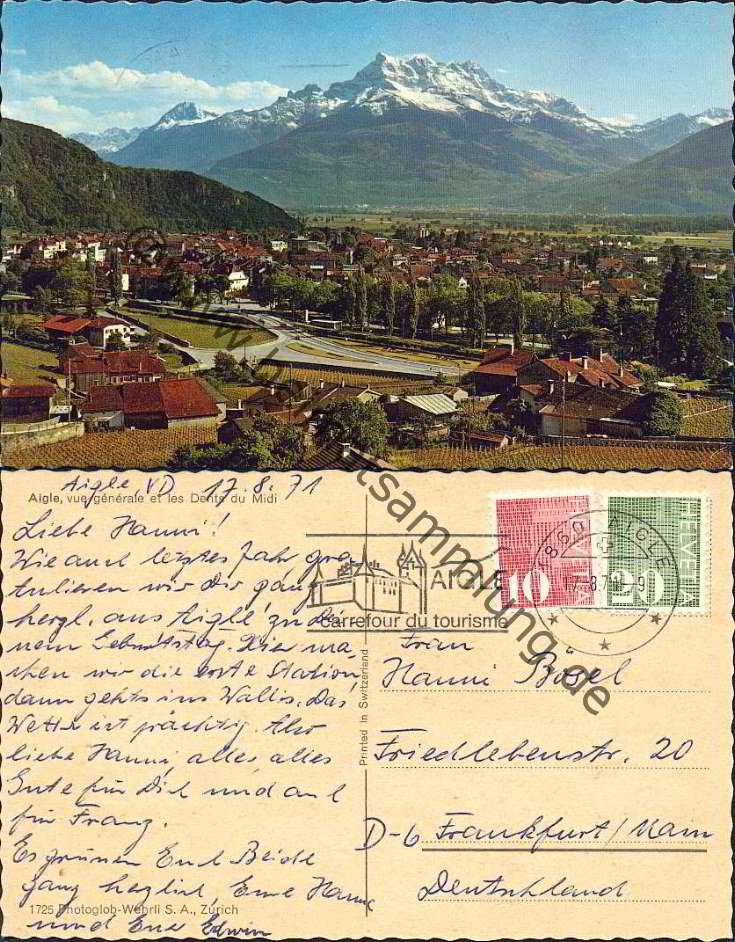 Aigle VD 17.8.71
Aigle, vue générale et les Dents du Midi
Liebe Hanni!
Wie auch letztes Jahr gra-
tulieren wir Dir ganz
herzl. aus Aigle zu Dei-
nem Geburtstag. Hier ma-
chen wir die erste Station
dann gehts ins Wallis. Das
Wetter ist prächtig. Also
liebe Hanni alles alles
Gute für Dich und auch
für Franz.
Es grüssen Euch Beide
ganz herzlich Eure Hanne
und Euer Edwin
1725 Photoglob-Wehrli S. A., Zürich
Printed in Switzerland
AIGLE
Carrefour du tourisme
HELVETIA
10
HELVETIA
20
1860 AIGLE
17-8.71-9
Frau
Hanni Bösel
Friedlebenstr. 20
D-6 Frankfurt/Main
Deutschland